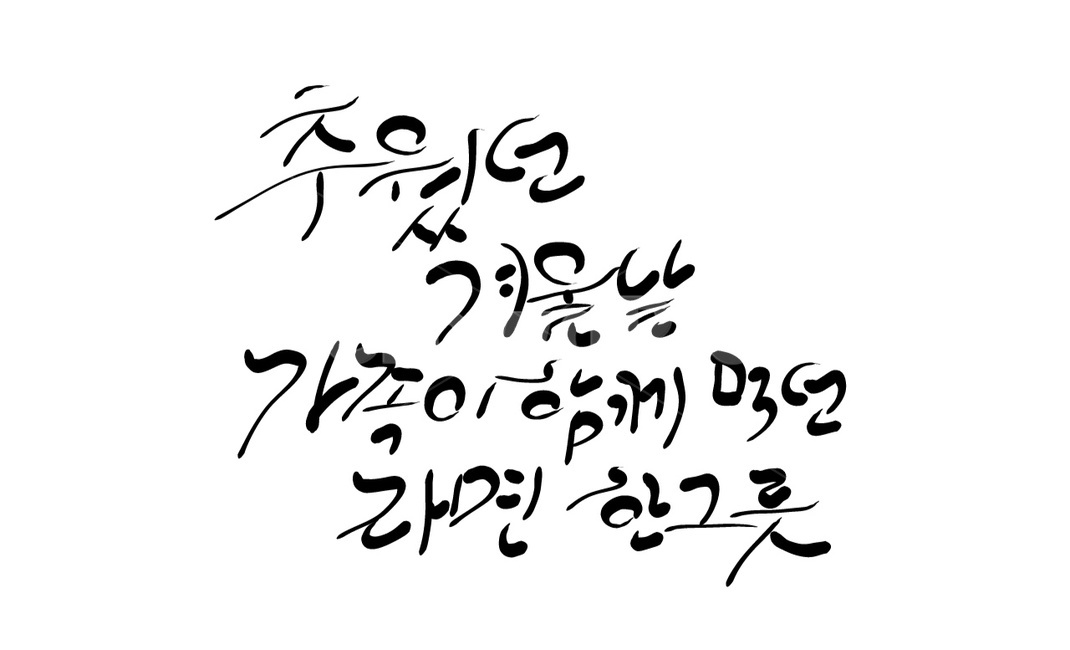 추웠던
겨울날
가족이 함께 먹던
라면 한그릇